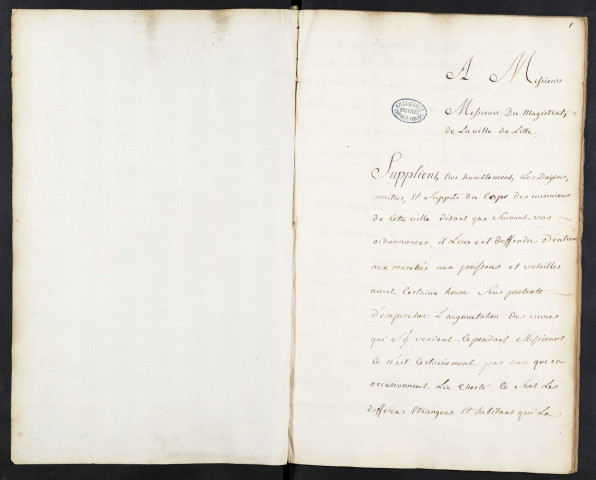 1
A Messieurs
Messieurs Du Magistrat,
de La ville de Lille.
Supplient, tres humblement, Les Doyens,
maitres, Et Supports du Corps des cuisiniers
de Cette ville disant que Suivant, vos
ordonnances, il Leur est deffendu D'entrer
aux marchés aux poissons et volailles
avant Certaine heure Sous pretexte
d'empecher L'augmentation des vivres
qui s'y vendent. Cependant Messieurs
Ce n'est Certainement pas eux qui en
occasionnent La Cherté Ce Sont Les
differens Etrangers Et habitans qui La